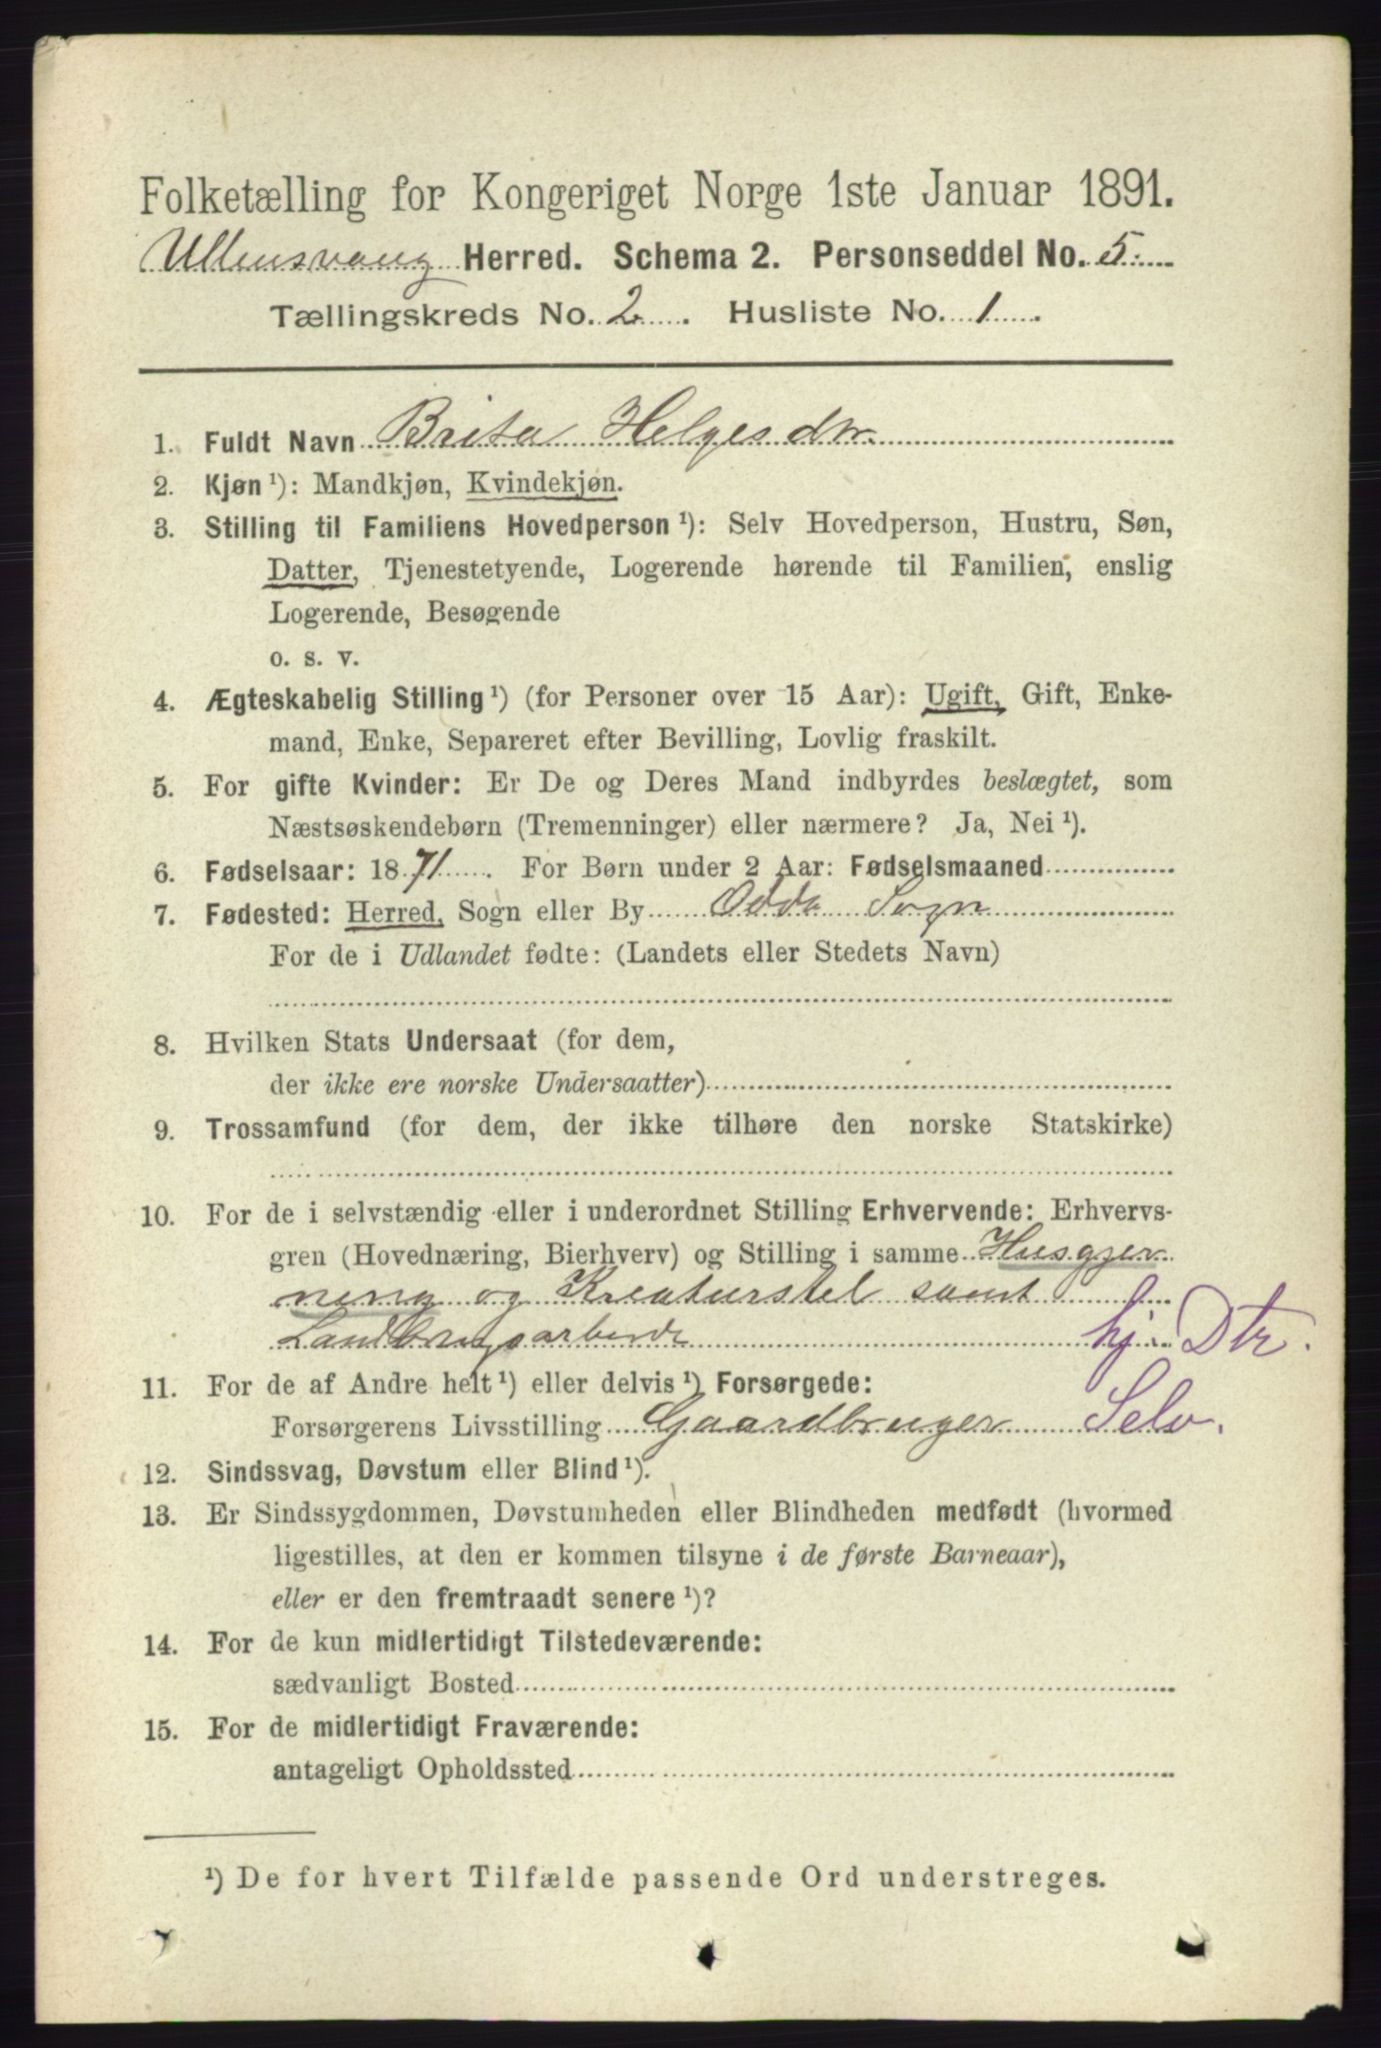 Folketælling for Kongeriget Norge 1ste Januar 1891.
Ullensvang Herred. Schema 2. Personseddel No. 5.
Tællingskreds No. 2. Husliste No. 1.
1. Fuldt Navn Brita Helgesdtr.
2. Kjøn ¹): Mandkjøn, Kvindekjøn.
3. Stilling til Familiens Hovedperson ¹): Selv Hovedperson, Hustru, Søn,
Datter, Tjenestetyende, Logerende hørende til Familien, enslig
Logerende, Besøgende
o. s. v.
4. Ægteskabelig Stilling ¹) (for Personer over 15 Aar): Ugift, Gift, Enke-
mand, Enke, Separeret efter Bevilling, Lovlig fraskilt.
5. For gifte Kvinder: Er De og Deres Mand indbyrdes beslægtet, som
Næstsøskendebørn (Tremenninger) eller nærmere? Ja, Nei ¹).
6. Fødselsaar: 1871. For Børn under 2 Aar: Fødselsmaaned
7. Fødested: Herred, Sogn eller By Odda Sogn
For de i Udlandet fødte: (Landets eller Stedets Navn)
8. Hvilken Stats Undersaat (for dem,
der ikke ere norske Undersaatter)
9. Trossamfund (for dem, der ikke tilhøre den norske Statskirke)
10. For de i selvstændig eller i underordnet Stilling Erhvervende: Erhvervs-
gren (Hovednæring, Bierhverv) og Stilling i samme Husgjer
ning og Kreaturstel samt
Landbrugsarbeide hj. Dtr.
11. For de af Andre helt ¹) eller delvis ¹) Forsørgede:
Forsørgerens Livsstilling Gaardbruger Selv.
12. Sindssvag, Døvstum eller Blind ¹).
13. Er Sindssygdommen, Døvstumheden eller Blindheden medfødt (hvormed
ligestilles, at den er kommen tilsyne i de første Barneaar),
eller er den fremtraadt senere ¹)?
14. For de kun midlertidigt Tilstedeværende:
sædvanligt Bosted
15. For de midlertidigt Fraværende:
antageligt Opholdssted
¹) De for hvert Tilfælde passende Ord understreges.